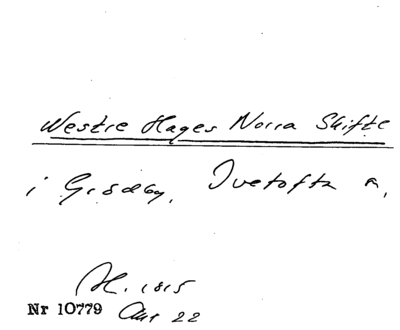 Westre Hages Norra Skifte
i Grödby, Ivetofta s,
A. 1815
Nr 10779 Aur 22